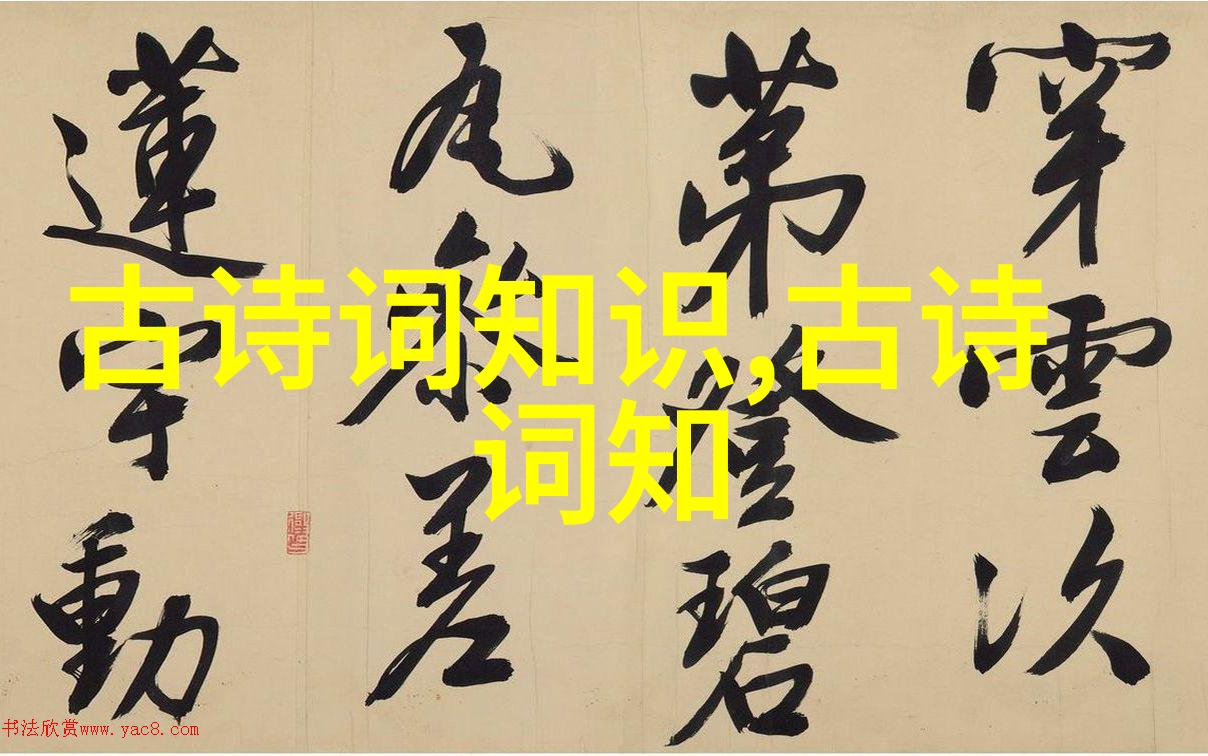 穿雲次
第證碧
瓦參差
蓮宇動
古诗词知识,古诗
词知
书法欣赏www.yac8.com